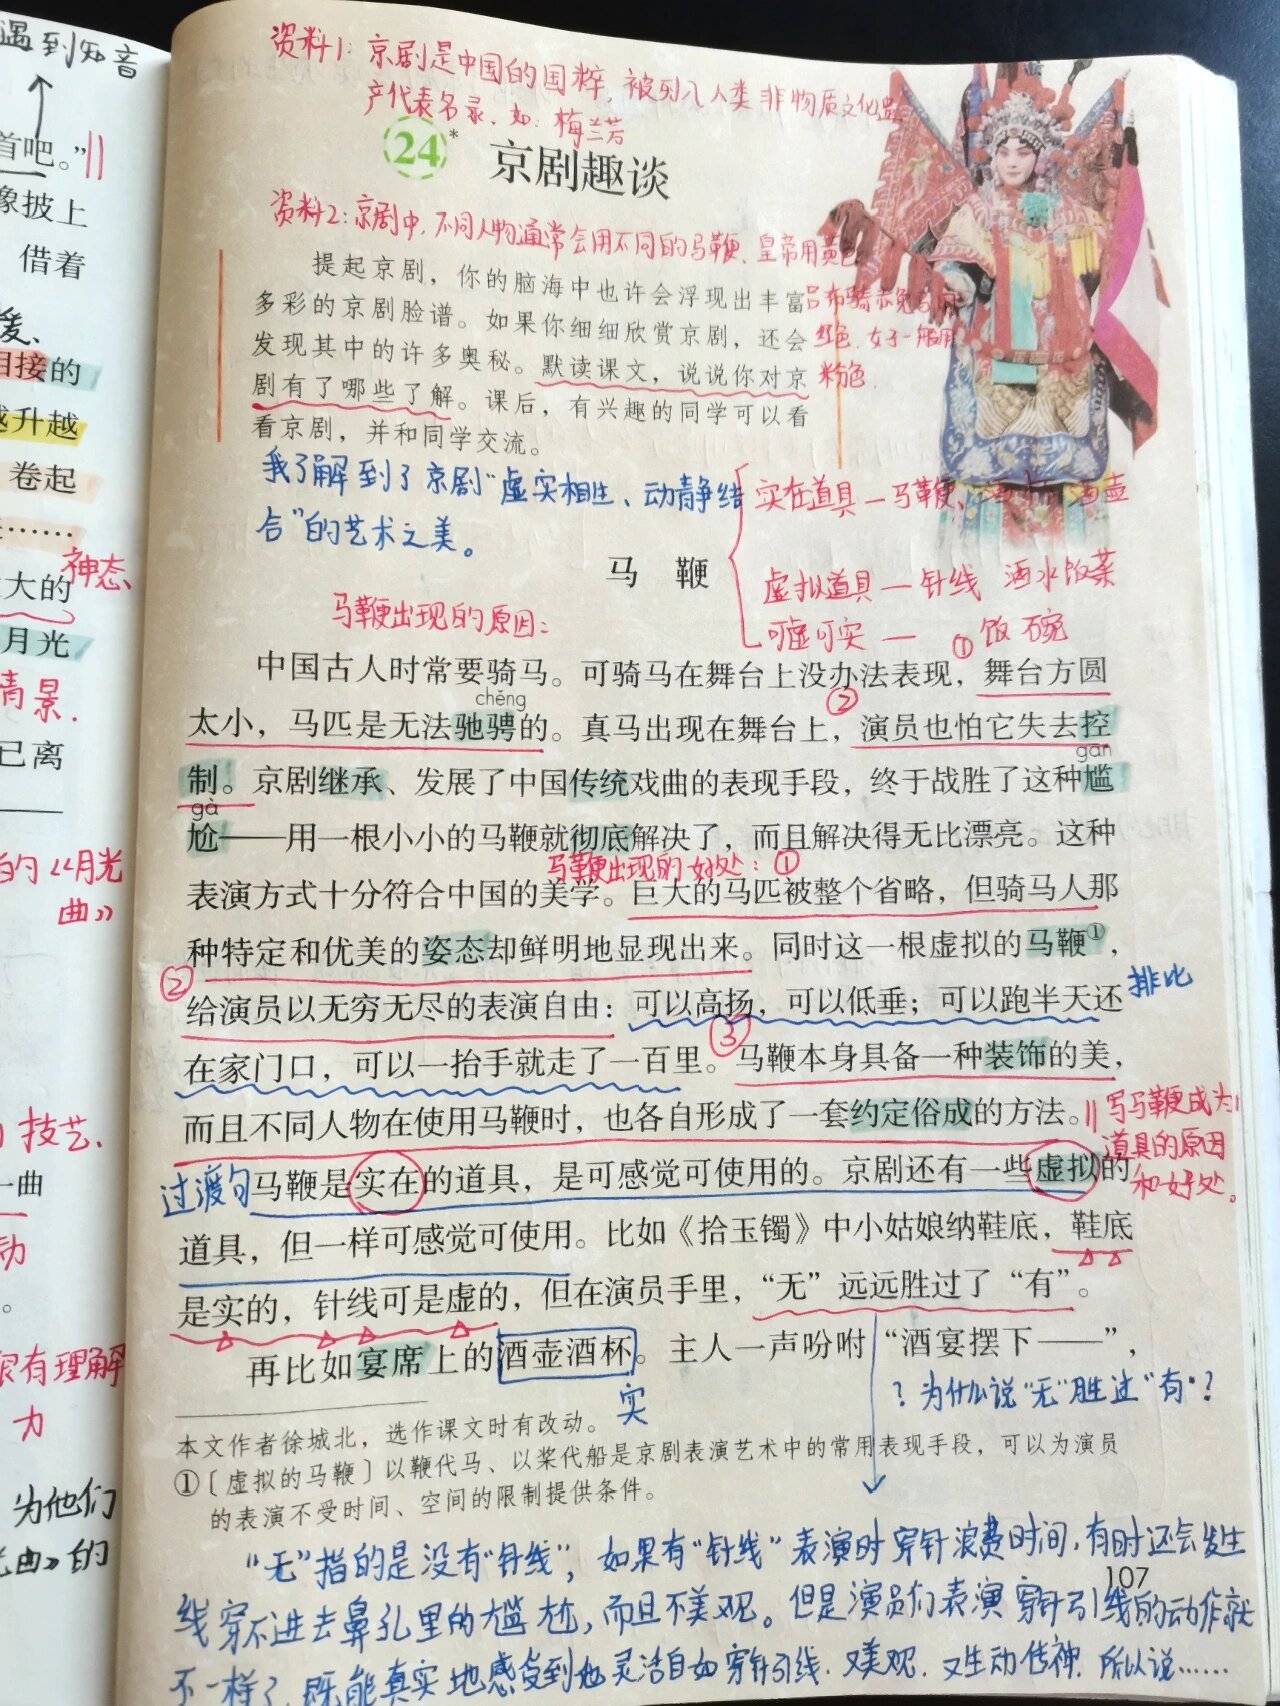 遇到知音
首吧。”
像披上
借着
缓、
相接的
越升越
卷起
……
神态、
大的
月光
情景.
已离
的《月光
曲》
技艺、
一曲
动
。
很有理解
力
为他们
光曲》的
资料1: 京剧是中国的国粹, 被列入人类非物质文化遗
产代表名录. 如: 梅兰芳
24* 京剧趣谈
资料2: 京剧中, 不同人物通常会用不同的马鞭. 皇帝用黄色
吕布骑赤兔马用
红色. 女子一般用
粉色.
提起京剧，你的脑海中也许会浮现出丰富
多彩的京剧脸谱。如果你细细欣赏京剧，还会
发现其中的许多奥秘。默读课文，说说你对京
剧有了哪些了解。课后，有兴趣的同学可以看
看京剧，并和同学交流。
我了解到了京剧“虚实相生、动静结
合”的艺术之美。
实在道具—马鞭、 酒壶
虚拟道具—针线 酒水饭菜
可虚可实— 饭碗
马 鞭
马鞭出现的原因:
①
中国古人时常要骑马。可骑马在舞台上没办法表现，舞台方圆
chěng
②
太小，马匹是无法驰骋的。真马出现在舞台上，演员也怕它失去控
gān
制。京剧继承、发展了中国传统戏曲的表现手段，终于战胜了这种尴
gà
尬——用一根小小的马鞭就彻底解决了，而且解决得无比漂亮。这种
马鞭出现的好处: ①
表演方式十分符合中国的美学。巨大的马匹被整个省略，但骑马人那
种特定和优美的姿态却鲜明地显现出来。同时这一根虚拟的马鞭①，
②
给演员以无穷无尽的表演自由：可以高扬，可以低垂；可以跑半天还
排比
③
在家门口，可以一抬手就走了一百里。马鞭本身具备一种装饰的美，
而且不同人物在使用马鞭时，也各自形成了一套约定俗成的方法。
写马鞭成为
道具的原因
和好处。
过渡句
马鞭是实在的道具，是可感觉可使用的。京剧还有一些虚拟的
道具，但一样可感觉可使用。比如《拾玉镯》中小姑娘纳鞋底，鞋底
是实的，针线可是虚的，但在演员手里，“无”远远胜过了“有”。
再比如宴席上的酒壶酒杯。主人一声吩咐“酒宴摆下——”，
实
? 为什么说“无”胜过“有”?
本文作者徐城北，选作课文时有改动。
①〔虚拟的马鞭〕以鞭代马、以桨代船是京剧表演艺术中的常用表现手段，可以为演员
的表演不受时间、空间的限制提供条件。
107
“无”指的是没有“针线”, 如果有“针线”表演时穿针浪费时间, 有时还会发生
线穿不进去鼻孔里的尴尬, 而且不美观。但是演员们表演穿针引线的动作就
不一样了, 既能真实地感觉到她灵活自如穿针引线. 又美观. 又生动传神. 所以说……